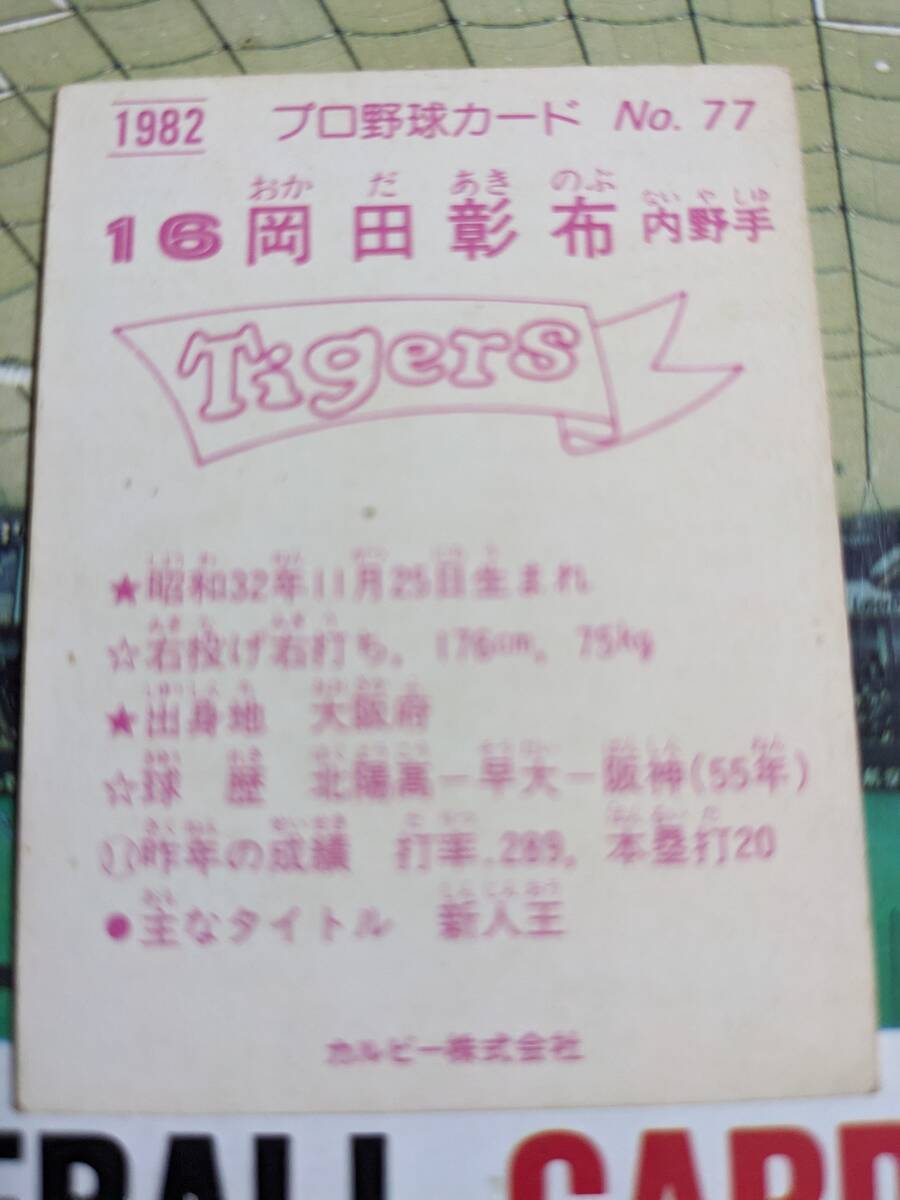 1982 プロ野球カード No. 77
おか だ あき のぶ ない や しゆ
16 岡田彰布 内野手
Tigers
★昭和32年11月25日生まれ
☆右投げ右打ち。176cm。75kg
★出身地 大阪府
☆球歴 北陽高－早大－阪神(55年)
昨年の成績 打率.289。本塁打20
●主なタイトル 新人王
カルビー株式会社
BALL CARD